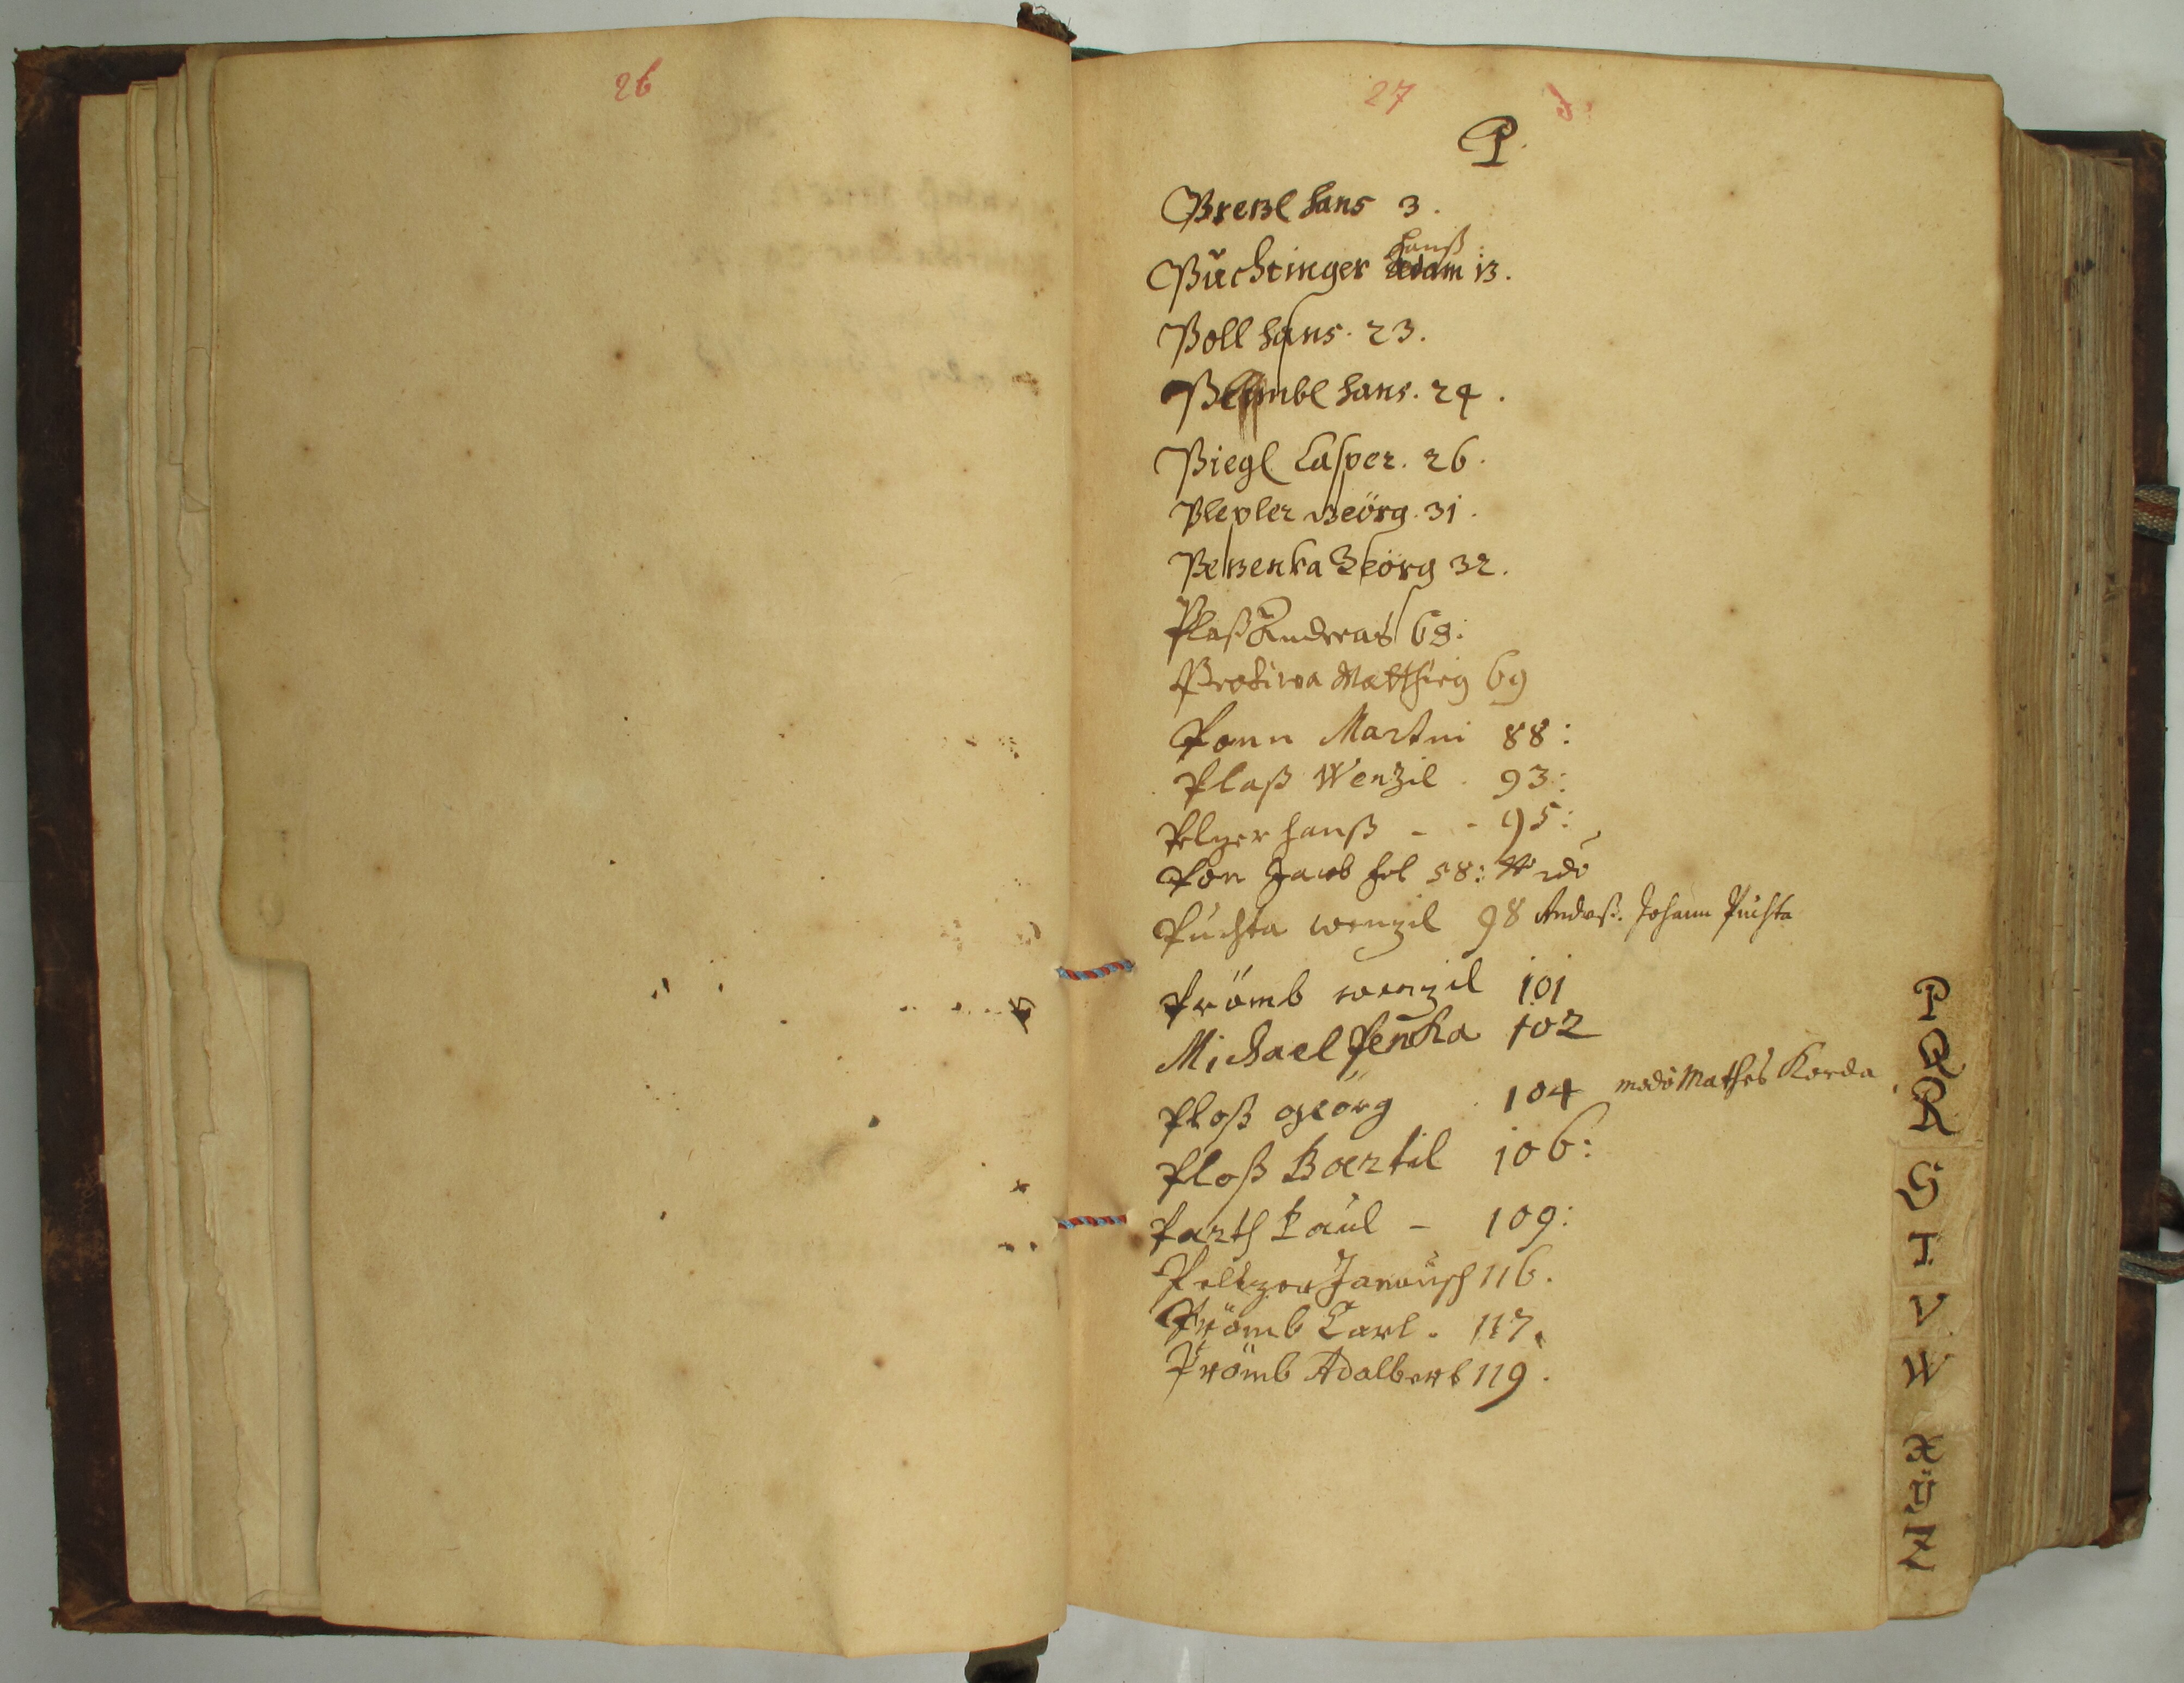 26
27
P.
Prexl Hans 3.
Hanß
Puchtinger Adam 13.
Poll Hans. 23.
Hans. 24.
Piegl Casper. 26.
Plepler Geörg. 31.
Pexenka Geörg 32.
Plaß Andreas 68:
Protiwa Matthieg 69
Ponn Martin 88:
Plaß Wenzil. 93:
Pelzer Hanß - - 95:
Pon Jacob fol 58:
Puchta Wenzil 98 Andreß. Johann Puchta
Prömb Wenzil 101
Michael Penka 102
Ploß Geörg 104 modo Mathes Korda
Ploß Bartil 106:
Parth Paul - 109:
Peltzer Janousch 116.
Prömb Carl. 117.
Prömb Adalbert 119.
P
Q
R
S
T
V
W
X
Y
Z